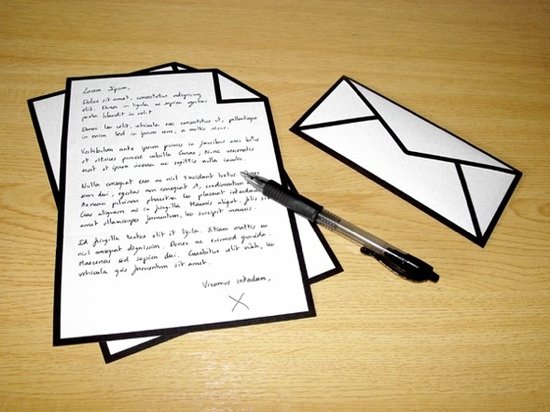 Lorem Ipsum,
Dolor sit amet, consectetur adipiscing
elit. Donec in ligula ac sapien egestas
porta blandit in velit
Donec leo velit, vehicula nec consectetur ut, pellentesque
in enim. Sed in ipsum sem, a mattis
Vestibulum ante ipsum primis in faucibus orci luctus
et ultrices posuere cubilia Curae; Nunc venenatis
erat et ipsum viverra ac sagittis nulla iaculis.
Nulla consequat eros ac nisl tincidunt luctus
sem dui, egestas non consequat
Aenean pulvinar pharetra leo placerat
Cras aliquam mi in fringilla. Mauris aliquet, felis sit
amet ullamcorper fermentum, leo suscipit mauris
Id fringilla tortor elit it ligula. Etiam mattis ex
nisl consequat dignissim. Donec ac euismod gravida.
Maecenas sed sapien dui. Curabitur elit nibh, leo
vehicula quis fermentum sit amet.
Vivamus interdum,
X